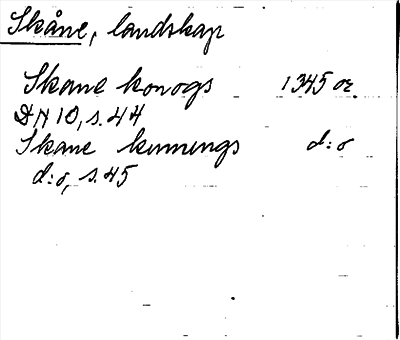 Skåne, landskap
Skane konogs 1345 or.
DN 10, s. 44
Skane kununengs d:o
d:o, s. 45